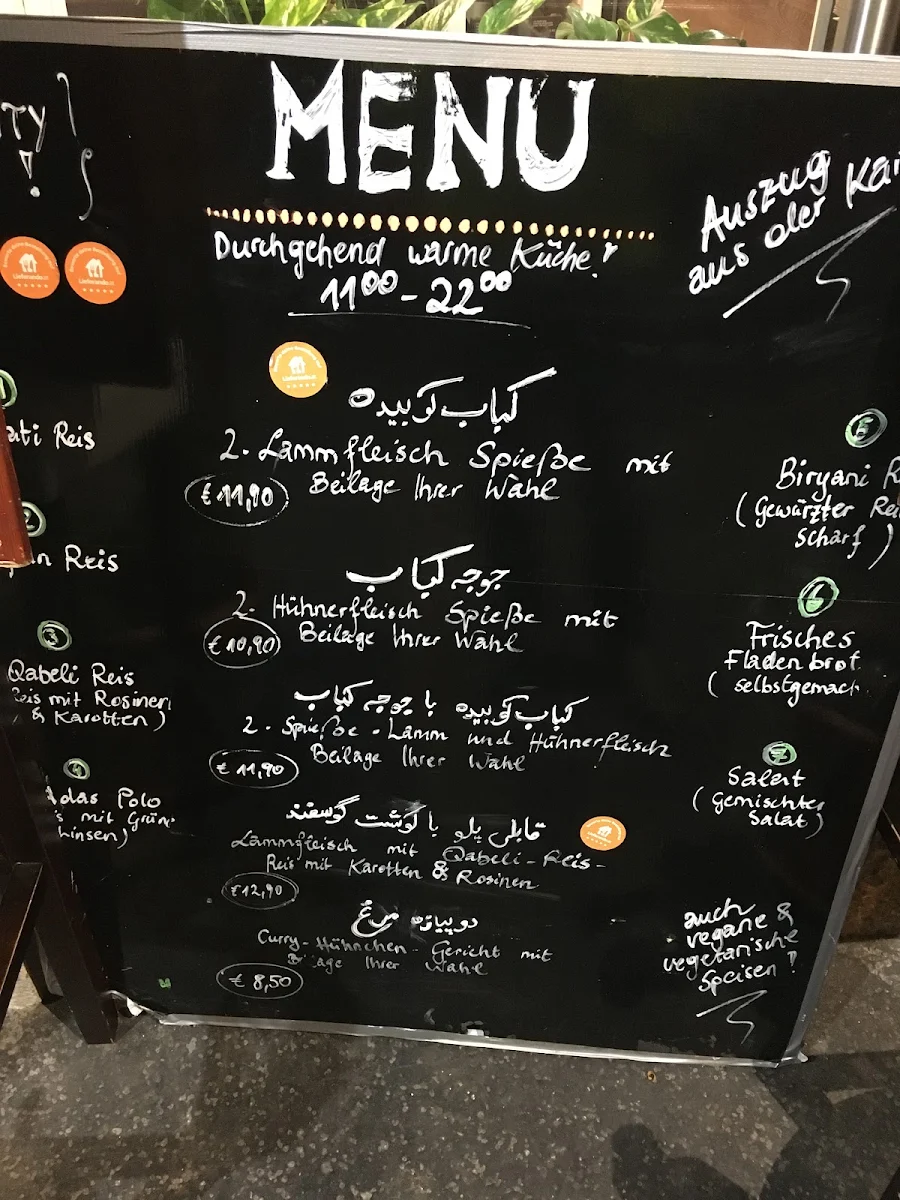 MENU
Durchgehend warme Küche!
11⁰⁰ - 22⁰⁰
Auszug
aus der
کباب کوبیده
2. Lammfleisch Spieße mit
Beilage Ihrer Wahl
€ 11,90
جوجه کباب
2. Hühnerfleisch Spieße mit
Beilage Ihrer Wahl
€ 10,90
کباب کوبیده با جوجه کباب
2. Spieße - Lamm und Hühnerfleisch
Beilage Ihrer Wahl
€ 11,90
قابلی پلو با گوشت گوسفند
Lammfleisch mit Qabeli-Reis-
Reis mit Karotten & Rosinen
€ 12,90
دوپیازه مرغ
Curry-Hühnchen-Gericht mit
Ihrer Wahl
€ 8,50
Reis
2
Reis
3
Qabeli Reis
Reis mit Rosinen
& Karotten)
4
Adas Polo
mit
Linsen)
5
Biryani
(Gewürzter
Scharf)
6
Frisches
Fladenbrot
(selbstgemacht
7
Salat
(Gemischter
Salat)
auch
vegane &
vegetarische
Speisen!